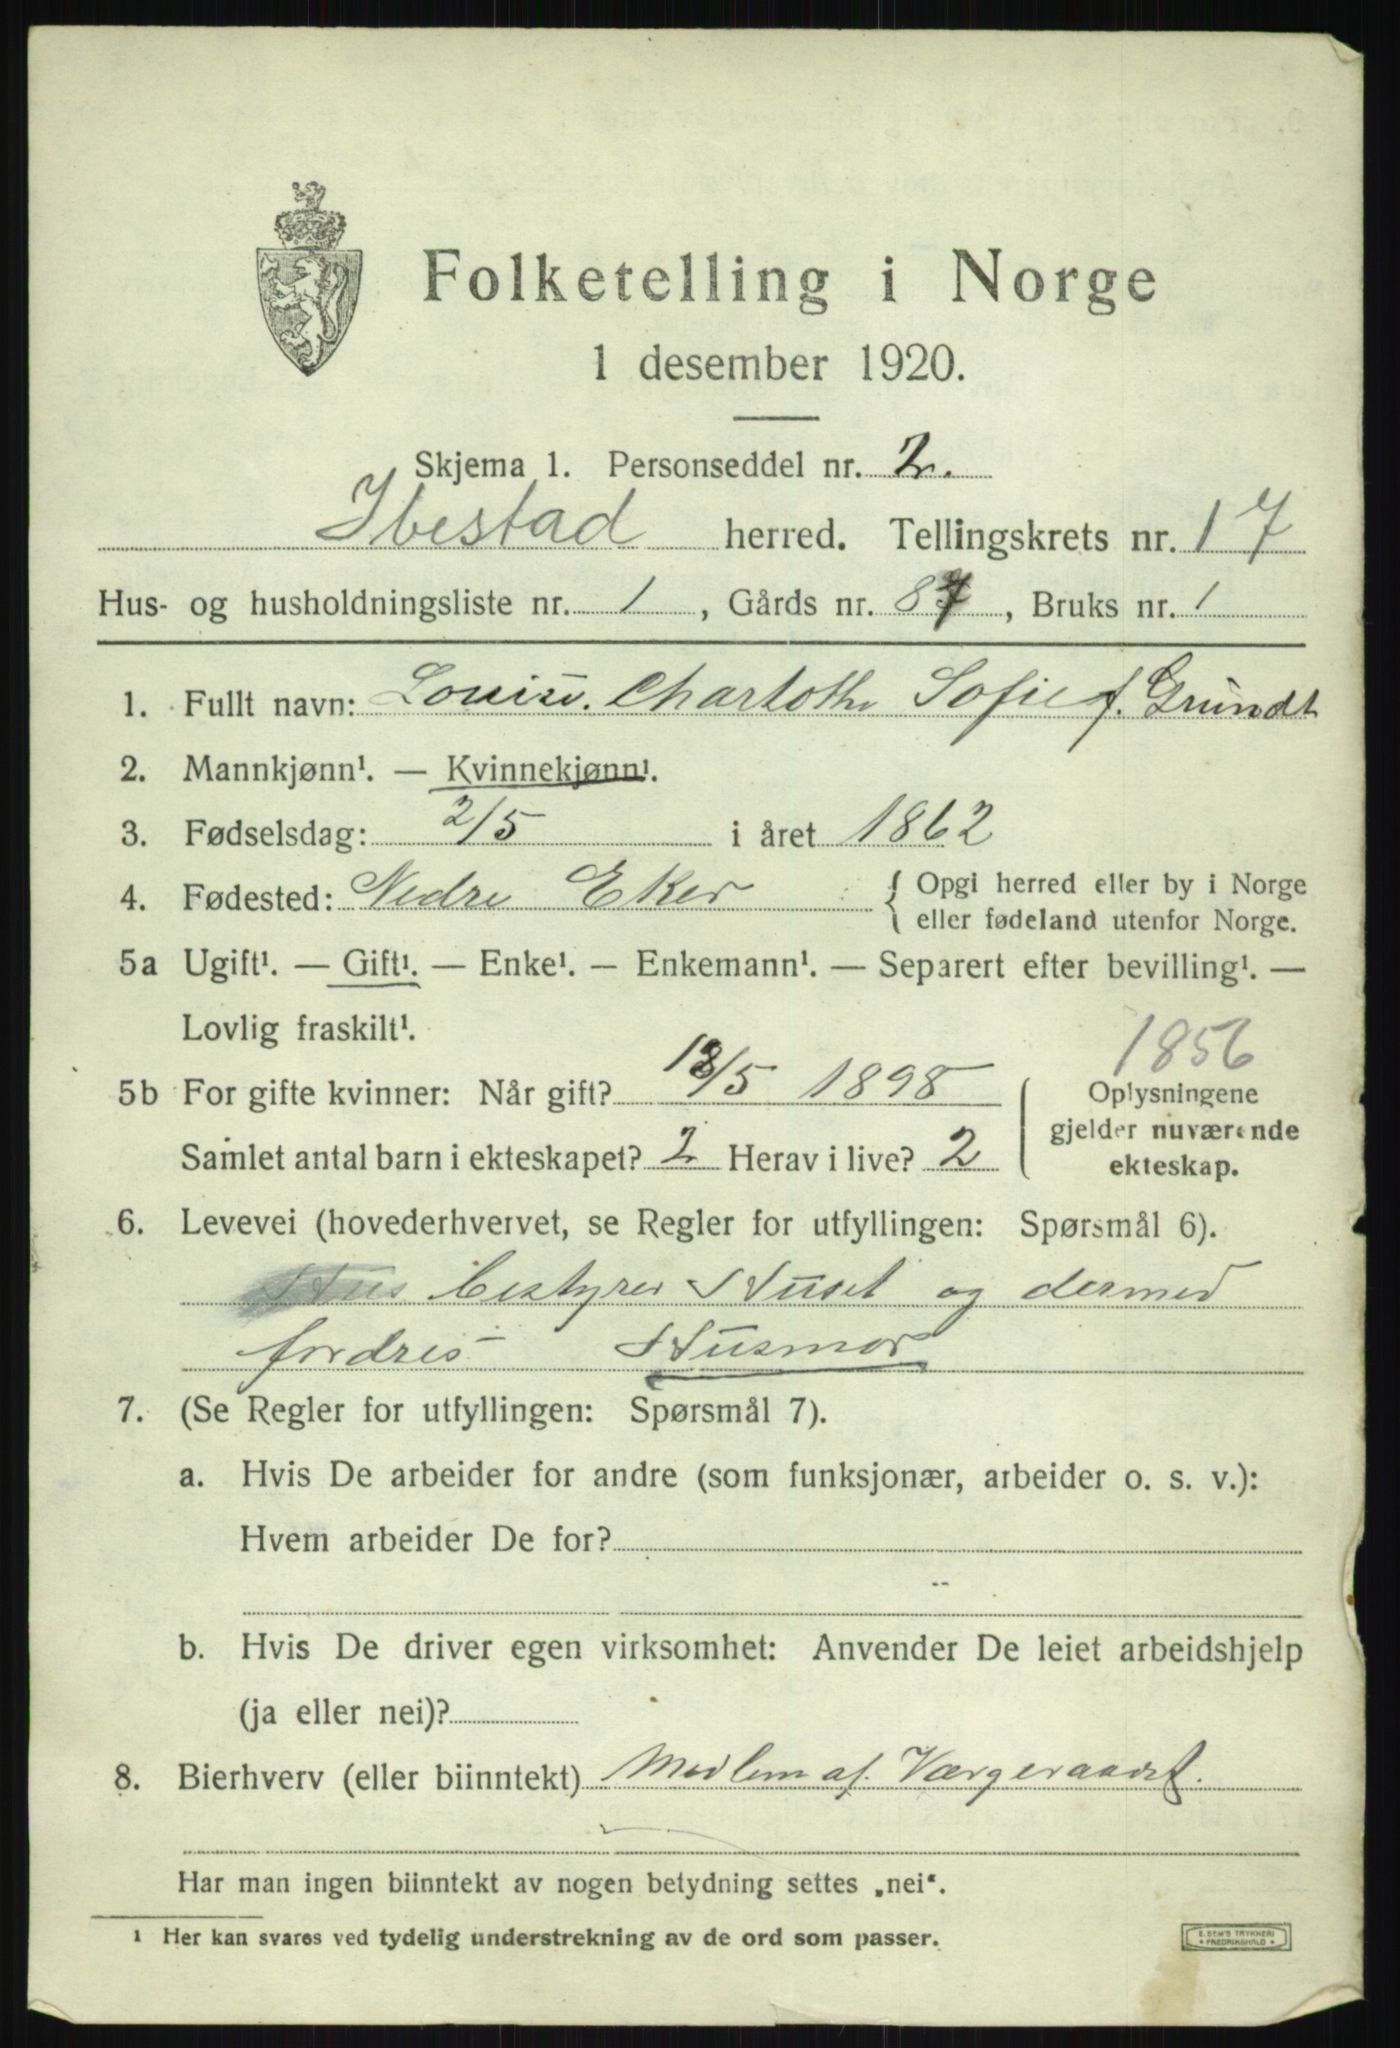 Folketelling i Norge
1 desember 1920.
Skjema 1. Personseddel nr. 2.
Ibestad herred. Tellingskrets nr. 17
Hus- og husholdningsliste nr. 1, Gårds nr. 87, Bruks nr. 1
1. Fullt navn: Louise. Charlothe Sofie f. Grundt
2. Mannkjønn¹. — Kvinnekjønn¹.
3. Fødselsdag: 2/5 i året 1862
4. Fødested: Nedre Eker { Opgi herred eller by i Norge
eller fødeland utenfor Norge.
5a Ugift¹. — Gift¹. — Enke¹. — Enkemann¹. — Separert efter bevilling¹. —
Lovlig fraskilt¹.
1856
5b For gifte kvinner: Når gift? 18/5 1898 Oplysningene
gjelder nuværende
Samlet antal barn i ekteskapet? 2 Herav i live? 2 ekteskap.
6. Levevei (hovederhvervet, se Regler for utfyllingen: Spørsmål 6).
Hus bestyrer Huset og dermed
fordres Husmor
7. (Se Regler for utfyllingen: Spørsmål 7).
a. Hvis De arbeider for andre (som funksjonær, arbeider o. s. v.):
Hvem arbeider De for?
b. Hvis De driver egen virksomhet: Anvender De leiet arbeidshjelp
(ja eller nei)?
8. Bierhverv (eller biinntekt) Medlem af. Værgeraadet.
Har man ingen biinntekt av nogen betydning settes „nei“.
¹ Her kan svares ved tydelig understrekning av de ord som passer.
E. SEM'S TRYKKERI
FREDRIKSHALD